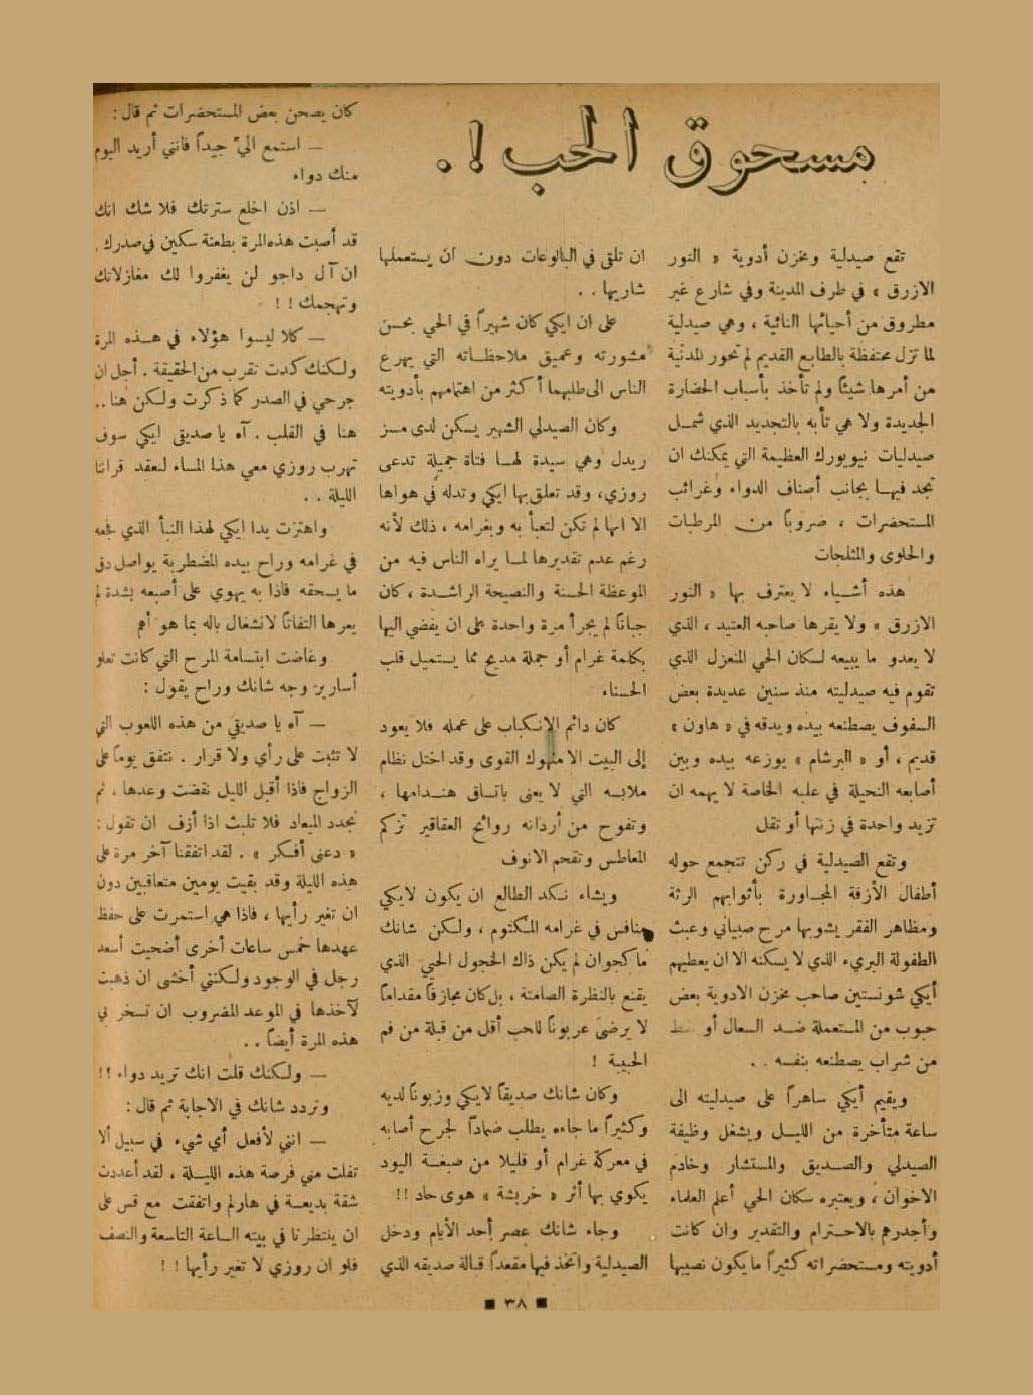 مسحوق الحب !.
تقع صيدلية ومخزن أدوية « النور
الازرق » في طرف المدينة وفي شارع غير
مطروق من أحيائها النائية ، وهي صيدلية
لما تزل محتفظة بالطابع القديم لم تحور المدنية
من أمرها شيئاً ولم تأخذ بأسباب الحضارة
الجديدة ولا هي تأبه بالتجديد الذي شمل
صيدليات نيويورك العظيمة التي يمكنك ان
تجد فيها بجانب أصناف الدواء وغرائب
المستحضرات ، ضروباً من المرطبات
والحلوى والمثلجات
هذه أشياء لا يعترف بها « النور
الازرق » ولا يقرها صاحبه العتيد ، الذي
لا يعدو ما يبيعه لسكان الحي المنعزل الذي
تقوم فيه صيدليته منذ سنين عديدة بعض
السفوف يصطنعه بيده ويدقه في « هاون »
قديم ، أو « البرشام » يوزعه بيده وبين
أصابعه النحيلة في علبه الخاصة لا يهمه ان
تزيد واحدة في زنتها أو تقل
وتقع الصيدلية في ركن تتجمع حوله
أطفال الأزقة المجاورة بأثوابهم الرثة
ومظاهر الفقر يشوبها مرح صبياني وعبث
الطفولة البريء الذي لا يسكنه الا ان يعطيهم
أيكي شونستين صاحب مخزن الادوية بعض
حبوب من المستعملة ضد السعال أو
من شراب يصطنعه بنفسه . .
ويقيم أيكي ساهراً على صيدليته الى
ساعة متأخرة من الليل ويشغل وظيفة
الصيدلي والصديق والمستشار وخادم
الاخوان ، ويعتبره سكان الحي أعلم العلماء
وأجدرهم بالاحترام والتقدير وان كانت
أدويته ومستحضراته كثيراً ما يكون نصيبها
ان تلقى في البالوعات دون ان يستعملها
شاريها . .
على ان ايكي كان شهيراً في الحي بحسن
مشورته وعميق ملاحظاته التي يهرع
الناس الى طلبهما أكثر من اهتمامهم بأدويته
وكان الصيدلي الشهير يسكن لدى مسز
ريدل وهي سيدة لها فتاة جميلة تدعى
روزي ، وقد تعلق بها ايكي وتدله في هواها
الا انها لم تكن لتعبأ به وبغرامه ، ذلك لأنه
رغم عدم تقديرها لما يراه الناس فيه من
الموعظة الحسنة والنصيحة الراشدة ، كان
جباناً لم يجرأ مرة واحدة على ان يفضي اليها
بكلمة غرام أو جملة مديح مما يستميل قلب
الحسناء
كان دائم الانكباب على عمله فلا يعود
إلى البيت الا منهوك القوى وقد اختل نظام
ملابسه التي لا يعنى باتساق هندامها ،
وتفوح من أردانه روائح العقاقير تزكم
المعاطس وتقحم الانوف
ويشاء نكد الطالع ان يكون لايكي
منافس في غرامه المكتوم ، ولكن شانك
ماكجوان لم يكن ذاك الخجول الحيي الذي
يقنع بالنظرة الصامتة ، بل كان مجازفاً مقداماً
لا يرضى عربوناً للحب أقل من قبلة من فم
الحبيبة !
وكان شانك صديقاً لايكي وزبوناً لديه
وكثيراً ما جاءه يطلب ضماداً لجرح أصابه
في معركة غرام أو قليلا من صبغة اليود
يكوي بها أثر « خربشة » هوى حاد !!
وجاء شانك عصر أحد الأيام ودخل
الصيدلية واتخذ فيها مقعداً قبالة صديقه الذي
كان يصحن بعض المستحضرات ثم قال :
— استمع اليّ جيداً فانني أريد اليوم
منك دواء
— اذن اخلع سترتك فلا شك انك
قد أصبت هذه المرة بطعنة سكين في صدرك .
ان آل داجو لن يغفروا لك مغازلاتك
وتهجمك ! !
— كلا ليسوا هؤلاء في هذه المرة
ولكنك كدت تقرب من الحقيقة . أجل ان
جرحي في الصدر كما ذكرت ولكن هنا ..
هنا في القلب . آه يا صديقي ايكي سوف
تهرب روزي معي هذا المساء لنعقد قراننا
الليلة . .
واهتزت يدا ايكي لهذا النبأ الذي فجعه
في غرامه وراح بيده المضطربة يواصل دق
ما يسحقه فاذا به يهوي على أصبعه بشدة لم
يعرها التفاتاً لانشغال باله بما هو أهم
وغاضت ابتسامة المرح التي كانت تعلو
أسارير وجه شانك وراح يقول :
— آه يا صديقي من هذه اللعوب التي
لا تثبت على رأي ولا قرار . نتفق يوماً على
الزواج فاذا أقبل الليل نقضت وعدها ، ثم
نجدد الميعاد فلا تلبث اذا أزف ان تقول :
« دعني أفكر » . لقد اتفقنا آخر مرة على
هذه الليلة وقد بقيت يومين متعاقبين دون
ان تغير رأيها ، فاذا هي استمرت على حفظ
عهدها خمس ساعات أخرى أضحيت أسعد
رجل في الوجود ولكنني أخشى ان ذهبت
لآخذها في الموعد المضروب ان تسخر بي
هذه المرة أيضاً ..
— ولكنك قلت انك تريد دواء ؟!!
وتردد شانك في الاجابة ثم قال :
— انني لأفعل أي شيء في سبيل ألا
تفلت مني فرصة هذه الليلة ، لقد أعددت
شقة بديعة في هارلم واتفقت مع قس على
ان ينتظرنا في بيته الساعة التاسعة والنصف
فلو ان روزي لا تغير رأيها ! !
■ ٣٨ ■